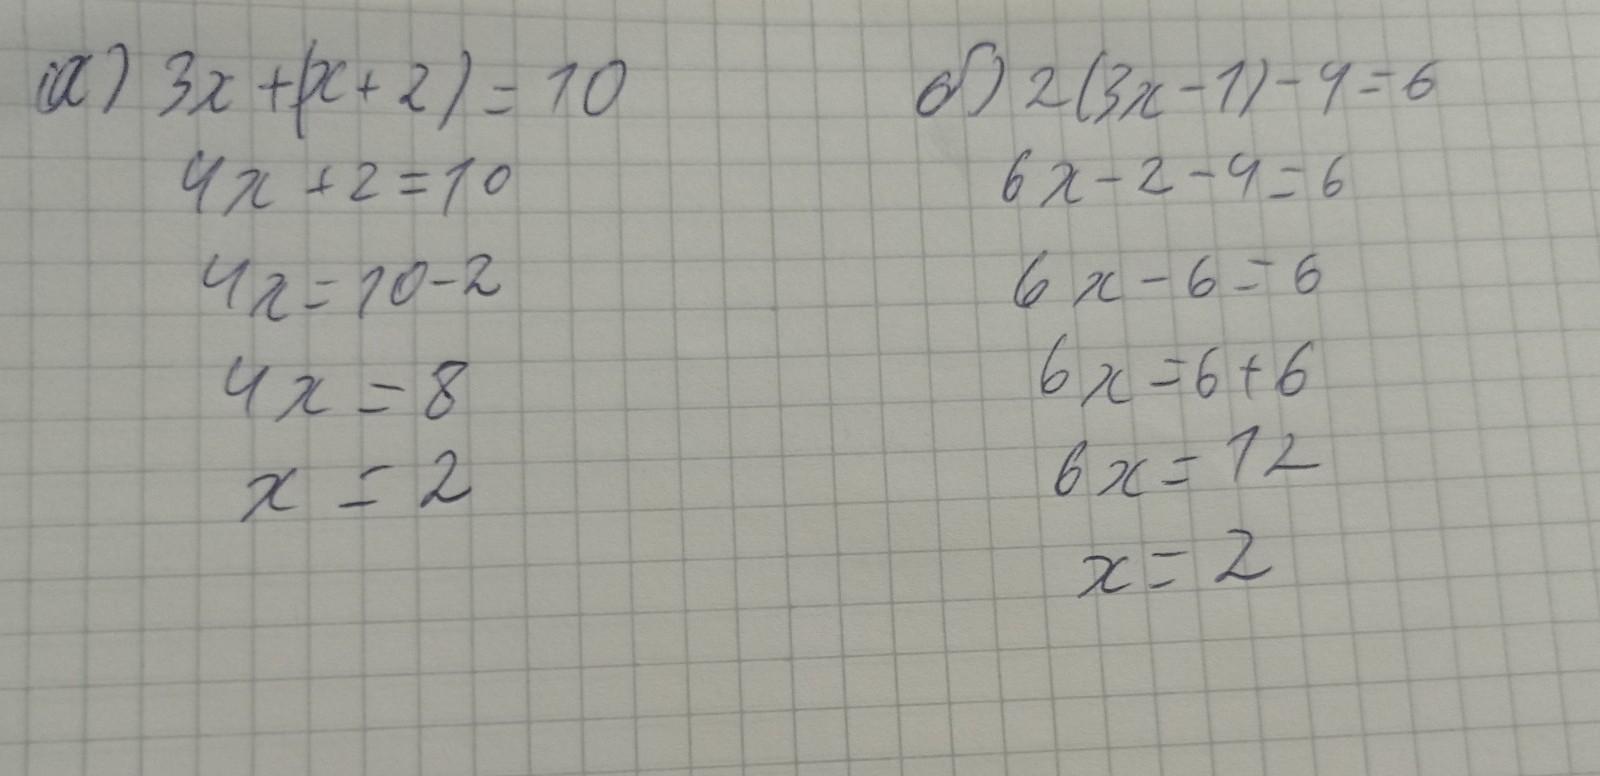 а) 3x + (x + 2) = 10
4x + 2 = 10
4x = 10 - 2
4x = 8
x = 2
б) 2(3x - 1) - 4 = 6
6x - 2 - 4 = 6
6x - 6 = 6
6x = 6 + 6
6x = 12
x = 2